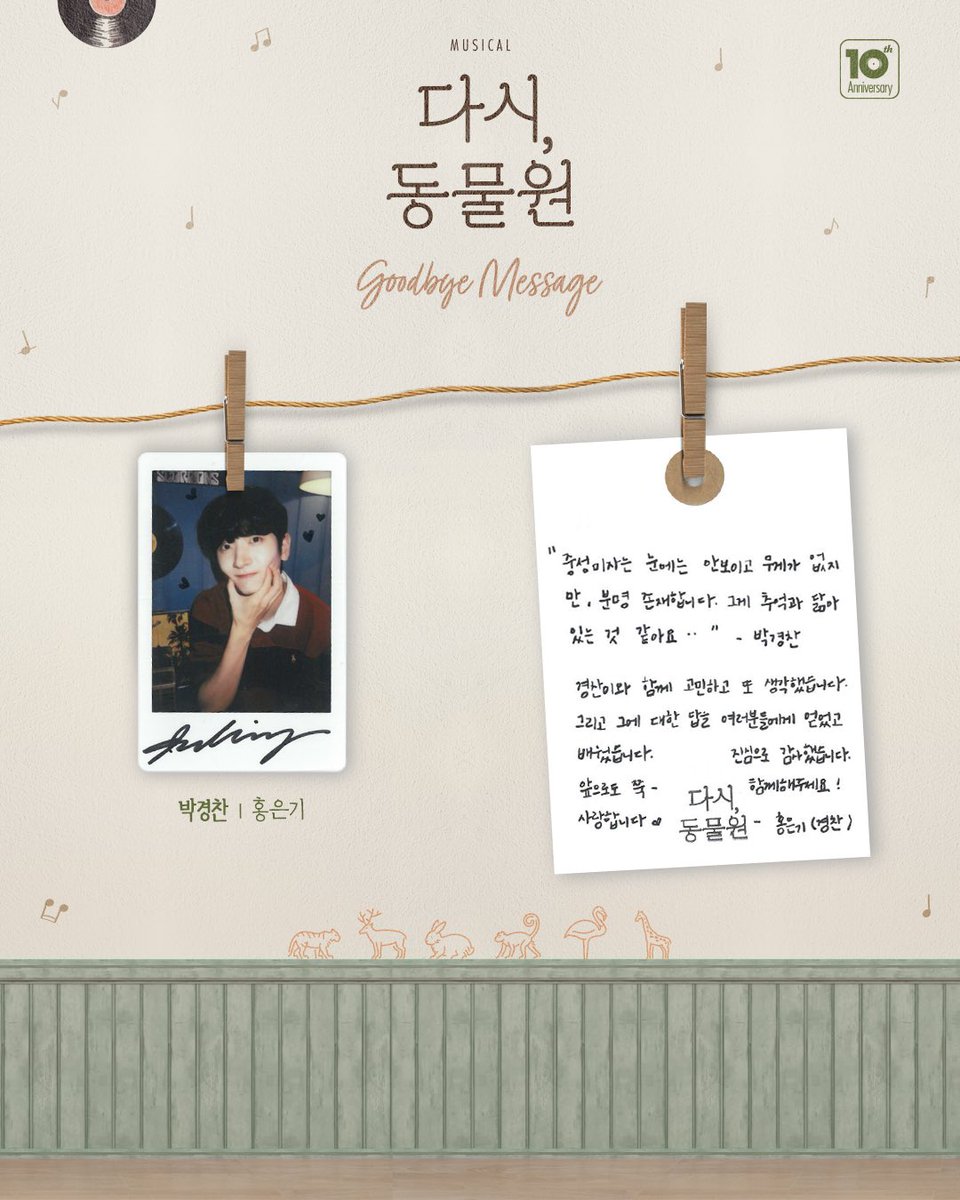 MUSICAL
10th
Anniversary
다시,
동물원
Goodbye Message
박경찬 | 홍은기
" 중성미자는 눈에는 안보이고 무게가 없지
만, 분명 존재합니다. 그게 추억과 닮아
있는 것 같아요.. " - 박경찬
경찬이와 함께 고민하고 또 생각했습니다.
그리고 그에 대한 답을 여러분들에게 얻었고
배웠습니다. 진심으로 감사했습니다.
앞으로도 쭉 - 다시, 동물원 함께해주세요!
사랑합니다 - 홍은기 (경찬)